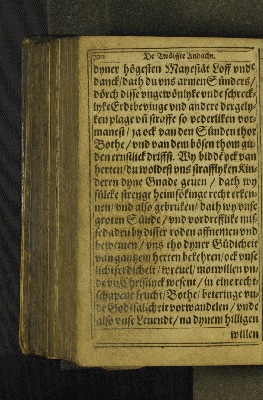 De Twölffte Andacht.
dyner högesten Mayestät Loff vnde
danck/ dath du vns armen Sünders/
dörch disse vngewönlyke vnde schreck-
lyke Erdtbevinge vnd andere dergely-
ken plage vn̄ straffe so vederliken vor-
manest/ ja ock van den Sünden thor
Bothe/ vnd van dem bösen thom gü-
den ernstlick driffst. Wy bidde ock van
herten/ du woldest vns strafflyken Kin-
deren dyne Gnade geuen/ dath wy
sülcke strenge heimsökinge recht erken-
nen/ vnd also gebruken/ dath wy vnse
groten Sünde/ vnd vordrefflike mis-
sedaden by disser roden affnemen vnd
beweinen/ vns tho dyner Güdicheit
van gantzem herten bekehren/ ock vnse
lichtferdicheit/ vreuel/ motwillen vn-
de vnChristlick wesent/ in eine recht-
schapene frucht/ Bothe/ beteringe vn-
de Godtsalicheit vorwandelen/ vnde
also vnse Leuendt/ na dynem hilligen
willen